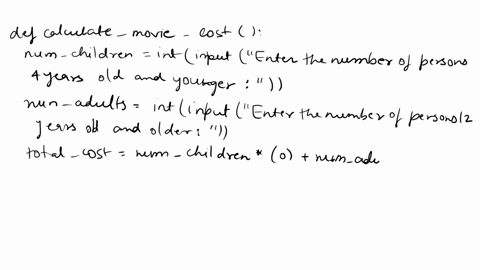 def calculate_movie_cost():
num_children = int(input("Enter the number of persons
4 years old and younger : "))
num_adults = int(input("Enter the number of persons 12
years old and older : "))
total_cost = num_children * (0) + num_adu